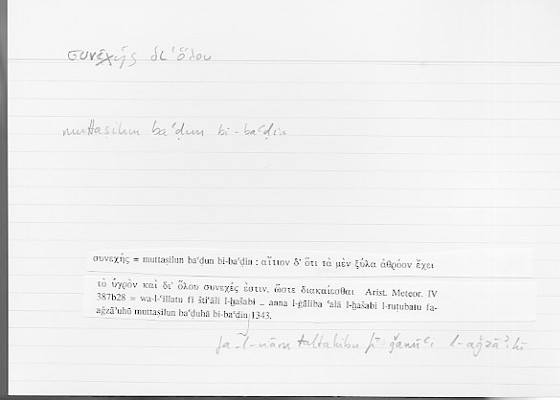 συνεχής δι' ὅλου
muttasilun ba'ḍun bi-ba'ḍin
συνεχής = muttasilun ba'ḍun bi-ba'ḍin : αἴτιον δ' ὅτι τὰ μὲν ξύλα ἀθρόον ἔχει
τὸ ὑγρὸν καὶ δι' ὅλου συνεχές ἐστιν, ὥστε διακαίεσθαι Arist. Meteor. IV
387b28 = wa-l-'illatu fī šti'āli l-ḫašabi _ anna l-ġāliba 'alā l-ḫašabi l-ruṭubatu fa-
aǧzā'uhū muttasilun ba'ḍuhā bi-ba'ḍin 1343.
fa-l-nāru taltahibu fī ǧamī'i l-aǧzā'i